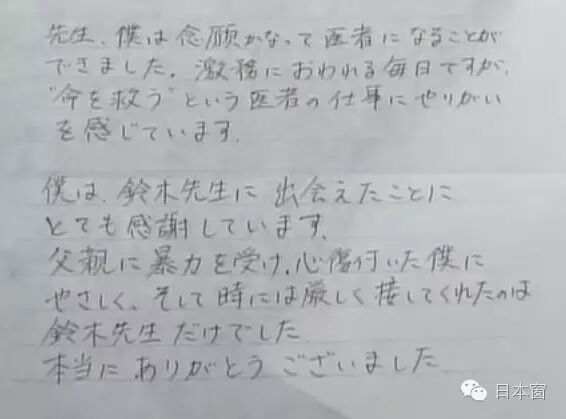 先生、僕は念願かなって医者になることが
できました。激務におわれる毎日ですが、
"命を救う"という医者の仕事にやりがい
を感じています。
僕は、鈴木先生に出会えたことに
とても感謝しています。
父親に暴力を受け、心傷付いた僕に
やさしく、そして時には厳しく接してくれたのは
鈴木先生だけでした
本当にありがとうございました
日本窗